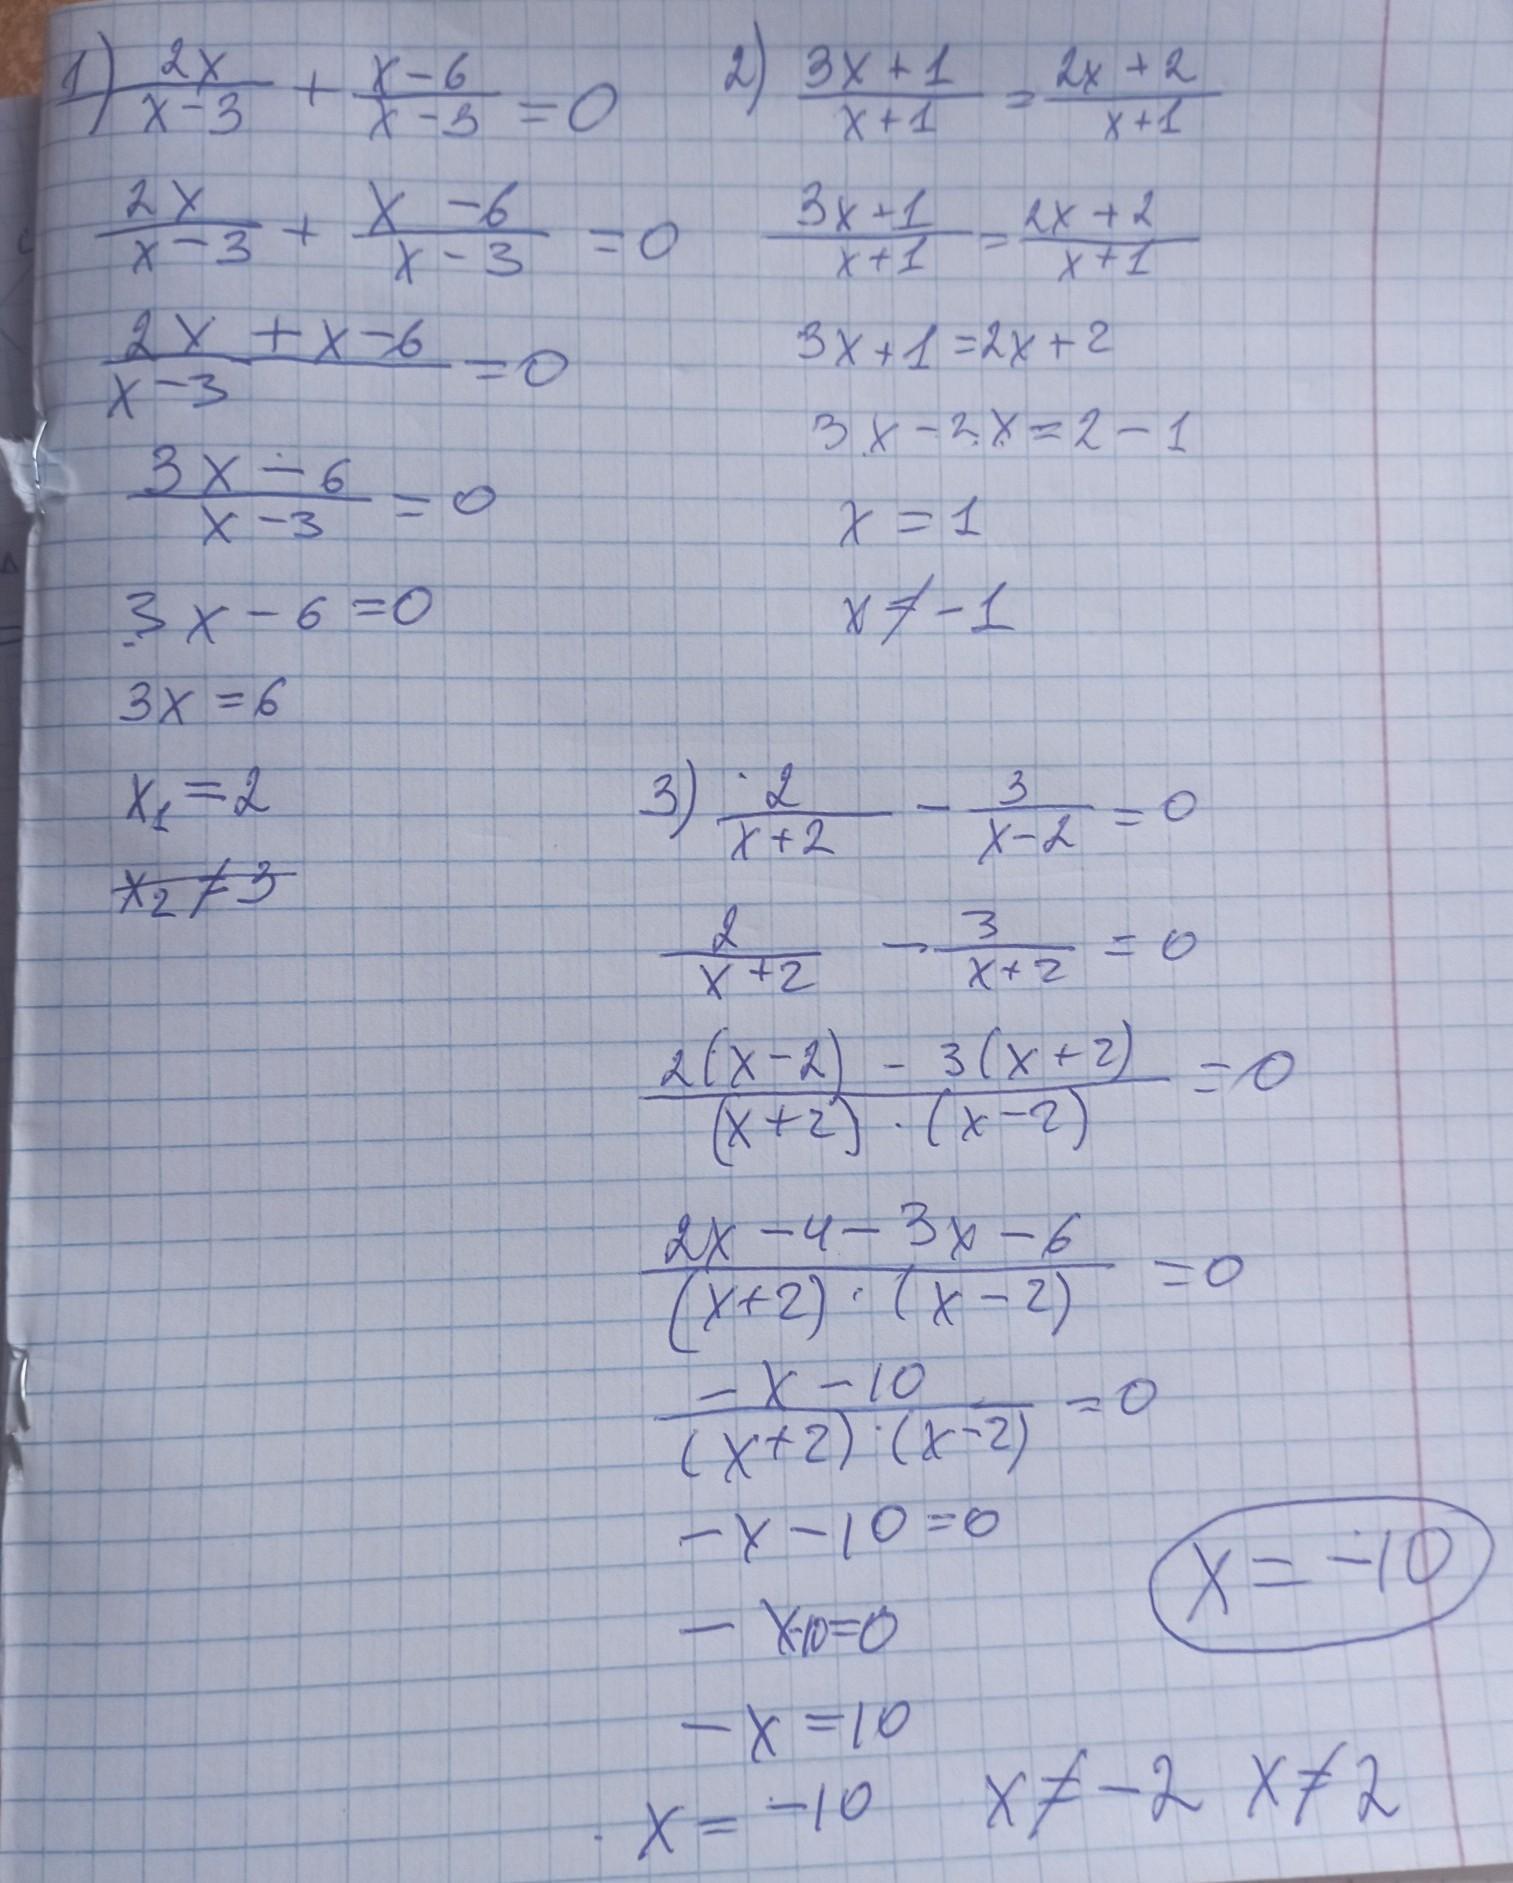 1) 2x/(x-3) + (x-6)/(x-3) = 0
2x/(x-3) + (x-6)/(x-3) = 0
(2x+x-6)/(x-3) = 0
(3x-6)/(x-3) = 0
3x-6=0
3x=6
x₁=2
x₂≠3
2) (3x+1)/(x+1) = (2x+2)/(x+1)
(3x+1)/(x+1) = (2x+2)/(x+1)
3x+1=2x+2
3x-2x=2-1
x=1
x≠-1
3) 2/(x+2) - 3/(x-2) = 0
2/(x+2) - 3/(x+2) = 0
(2(x-2) - 3(x+2))/((x+2)·(x-2)) = 0
(2x-4-3x-6)/((x+2)·(x-2)) = 0
(-x-10)/((x+2)·(x-2)) = 0
-x-10=0
-x-10=0
-x=10
x=-10 x≠-2 x≠2
x=-10